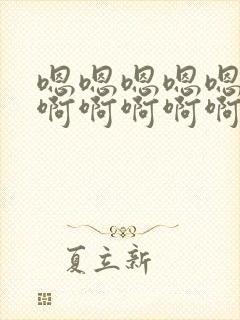 嗯嗯嗯嗯嗯
啊啊啊啊啊
夏立新